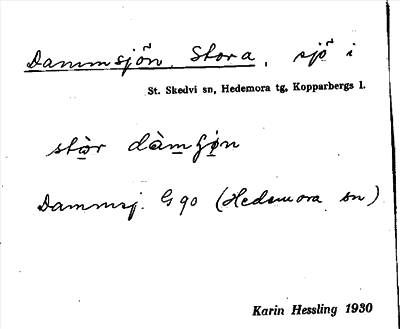 Dammsjön, Stora, sjö i
St. Skedvi sn, Hedemora tg, Kopparbergs l.
stòr dàmʃön
Dammsj. G 90 (Hedemora sn)
Karin Hessling 1930